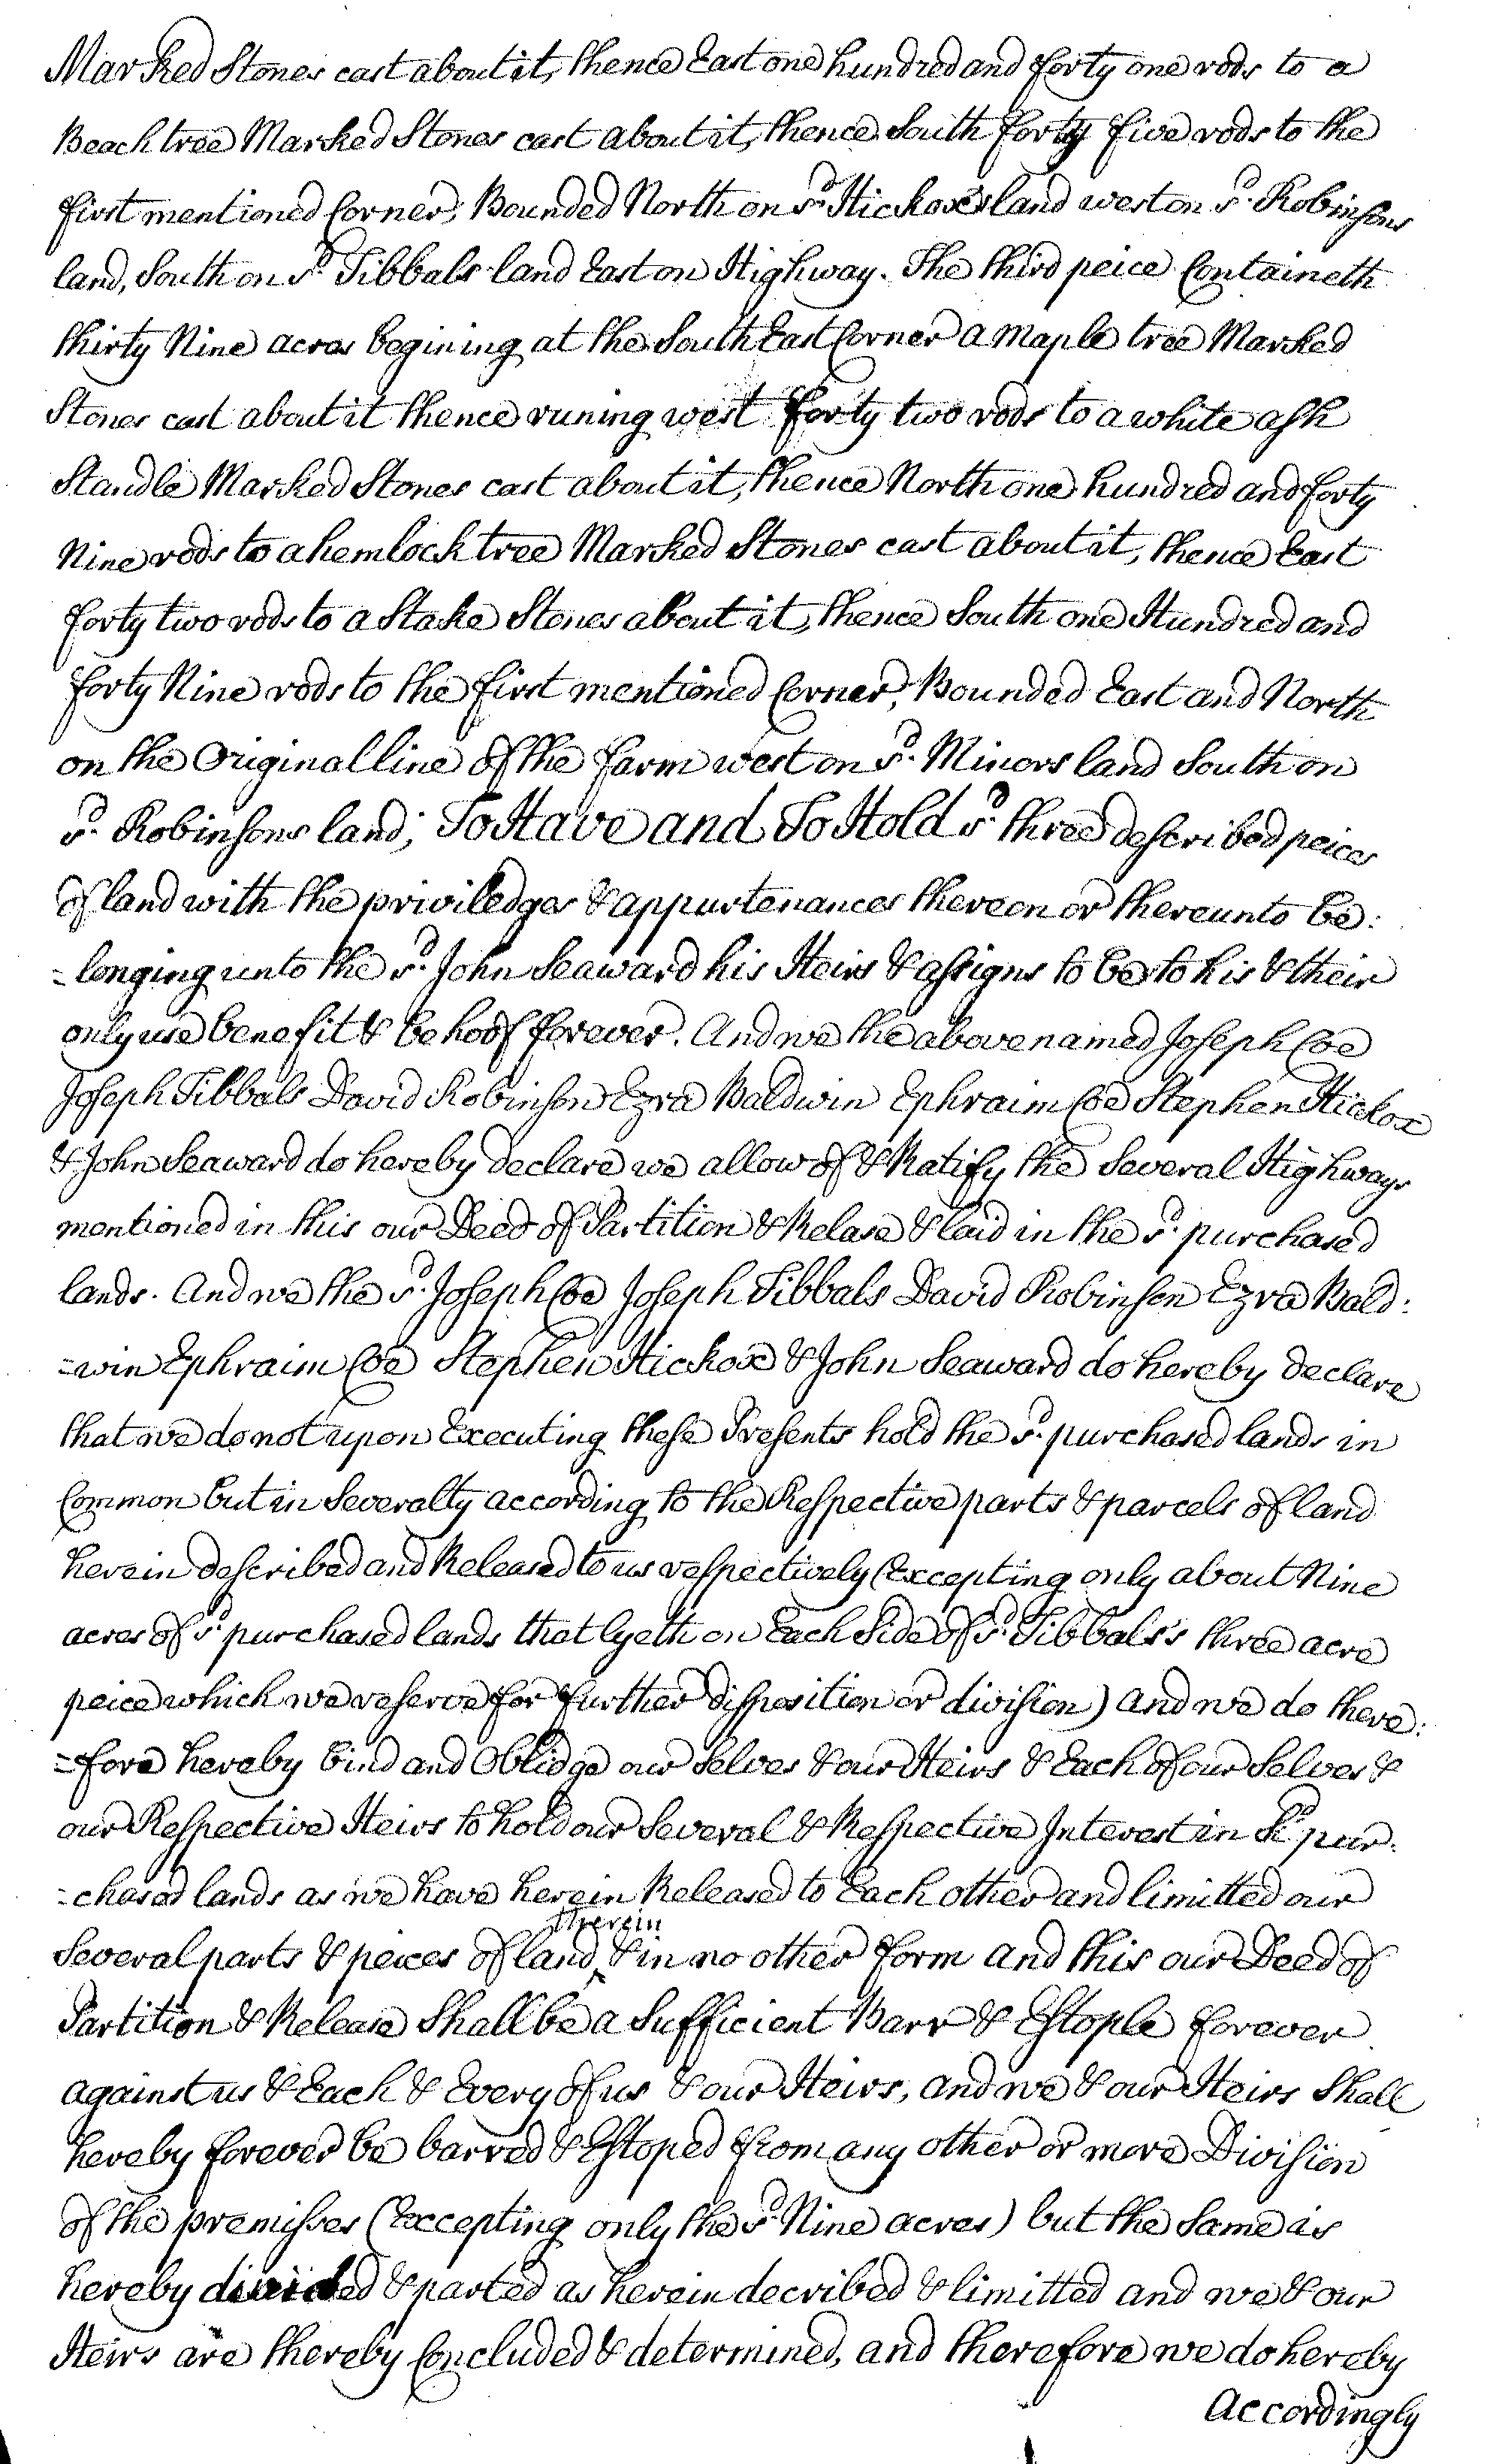 Marked Stones cast about it, thence East one hundred and forty one rods to a
Beach tree Marked Stones cast about it, thence South forty five rods to the
first mentioned Corner, Bounded North on sd. Hickoxes land west on sd. Robinsons
land, South on sd. Tibbals land East on Highway. The third peice Containeth
thirty Nine acres begining at the South East Corner a maple tree Marked
Stones cast about it thence runing west forty two rods to a white ash
Standle Marked Stones cast about it, thence North one hundred and forty
Nine rods to a hemlock tree Marked Stones cast about it, thence East
forty two rods to a Stake Stones about it, thence South one Hundred and
forty Nine rods to the first mentioned Corner, Bounded East and North
on the Original line of the farm west on sd. Minors land South on
sd. Robinsons land; To Have and To Hold sd. three described peices
of land with the priviledges & appurtenances thereon or thereunto be:
-longing unto the sd. John Seaward his Heirs & assigns to be to his & their
only use benefit & behoof forever. And we the above named Joseph Coe
Joseph Tibbals David Robinson Ezra Baldwin Ephraim Coe Stephen Hickox
& John Seaward do hereby declare we allow of & Ratify the Several Highways
mentioned in this our Deed of Partition & Relase & laid in the sd. purchased
lands. And we the sd. Joseph Coe Joseph Tibbals David Robinson Ezra Bald:
=win Ephraim Coe Stephen Hickox & John Seaward do hereby declare
that we do not upon Executing these Presents hold the sd. purchased lands in
Common but in Severalty according to the Respective parts & parcels of land
herein described and Released to us respectively (Excepting only about Nine
acres of sd. purchased lands that lyeth on Each Side of sd. Tibbals's three acre
peice which we reserve for further disposition or division) and we do there:
=fore hereby bind and Oblidge our Selves & our Heirs & Each of our Selves &
our Respective Heirs to hold our Several & Respective Interest in sd. pur:
-chased lands as we have herein Released to Each other and limitted our
therein
Several parts & peices of land & in no other form and this our Deed of
Partition & Release Shall be a Sufficient Barr & Estople forever
against us & Each & Every of us & our Heirs, and we & our Heirs Shall
hereby forever be barred & Estoped from any other or more Division
of the premisses (Excepting only the sd. Nine acres) but the Same is
hereby divided & parted as herein decribed & limitted and we & our
Heirs are thereby Concluded & determined, and therefore we do hereby
Accordingly